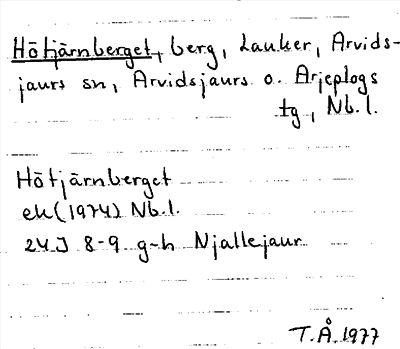 Hötjärnberget, berg, Lauker, Arvids-
jaurs sn, Arvidsjaurs o. Arjeplogs
tg, Nb.l.
Hötjärnberget
ek (1974) Nb.l.
24J 8-9 g-h Njallejaur
T.Å. 1977